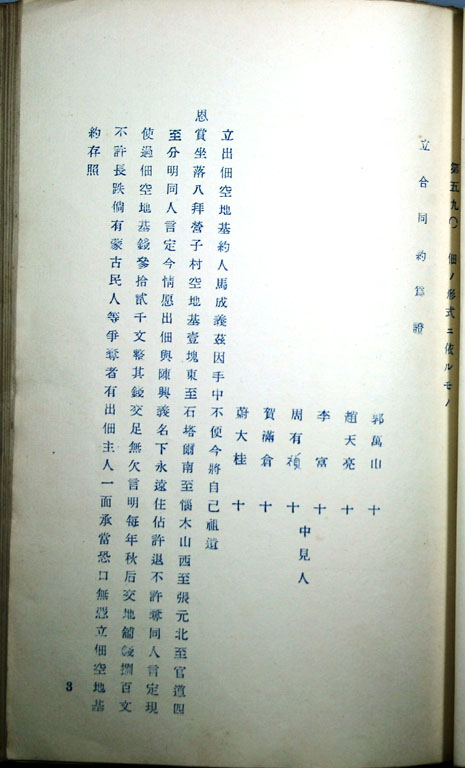 第五九〇 佃ノ形式ニ依ルモノ
立合同約爲證
郭萬山 十
趙天亮 十
李富 十
周有禎 十 中見人
賀滿倉 十
蔚大桂 十
立出佃空地基約人馬成義茲因手中不便今將自己祖遺
恩賞坐落八拜營子村空地基壹塊東至石塔爾南至惱木山西至張元北至官道四
至分明同人言定今情愿出佃與陳興義名下永遠住佔許退不許奪同人言定現
使過佃空地基錢參拾貳千文整其錢交足無欠言明每年秋后交地舖錢捌百文
不許長跌倘有蒙古民人等爭奪者有出佃主人一面承當恐口無憑立佃空地基
約存照
3